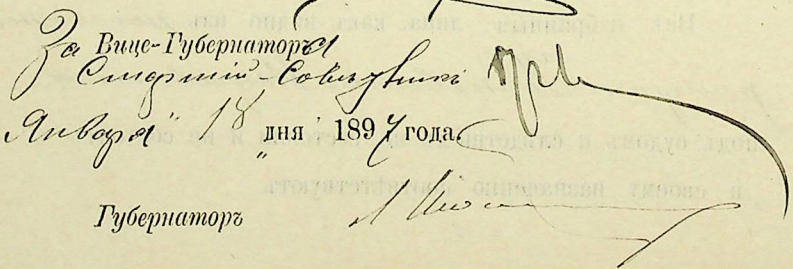 За Вице-Губернатора
Старшiй Совѣтникъ
Января 18 дня 1897 года.
Губернаторъ